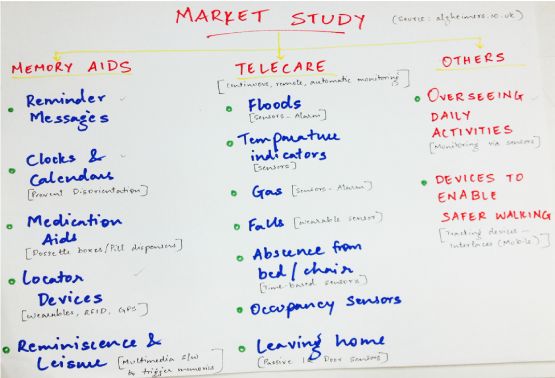 MARKET STUDY
(Source: alzheimers.co.uk)
MEMORY AIDS
Reminder
Messages
Clocks &
Calendars
[Prevent Disorientation]
Medication
Aids
[Dossette boxes/Pill dispensers]
Locator
Devices
[Wearables, RFID, GPS]
Reminiscence &
Leisure [Multimedia s/w
to trigger memories
TELECARE
[continuous, remote, automatic monitoring]
Floods
[Sensors - Alarm]
Temperature
indicators
[Sensors]
Gas [Sensors - Alarm]
Falls [Wearable sensor]
Abscence from
bed / chair
[Time-based sensors]
Occupancy sensors
Leaving home
[Passive IR Door sensors]
OTHERS
OVERSEEING
DAILY
ACTIVITIES
[Monitoring via sensors]
DEVICES TO
ENABLE
SAFER WALKING
[Tracking devices -
Interfaces (Mobile)]